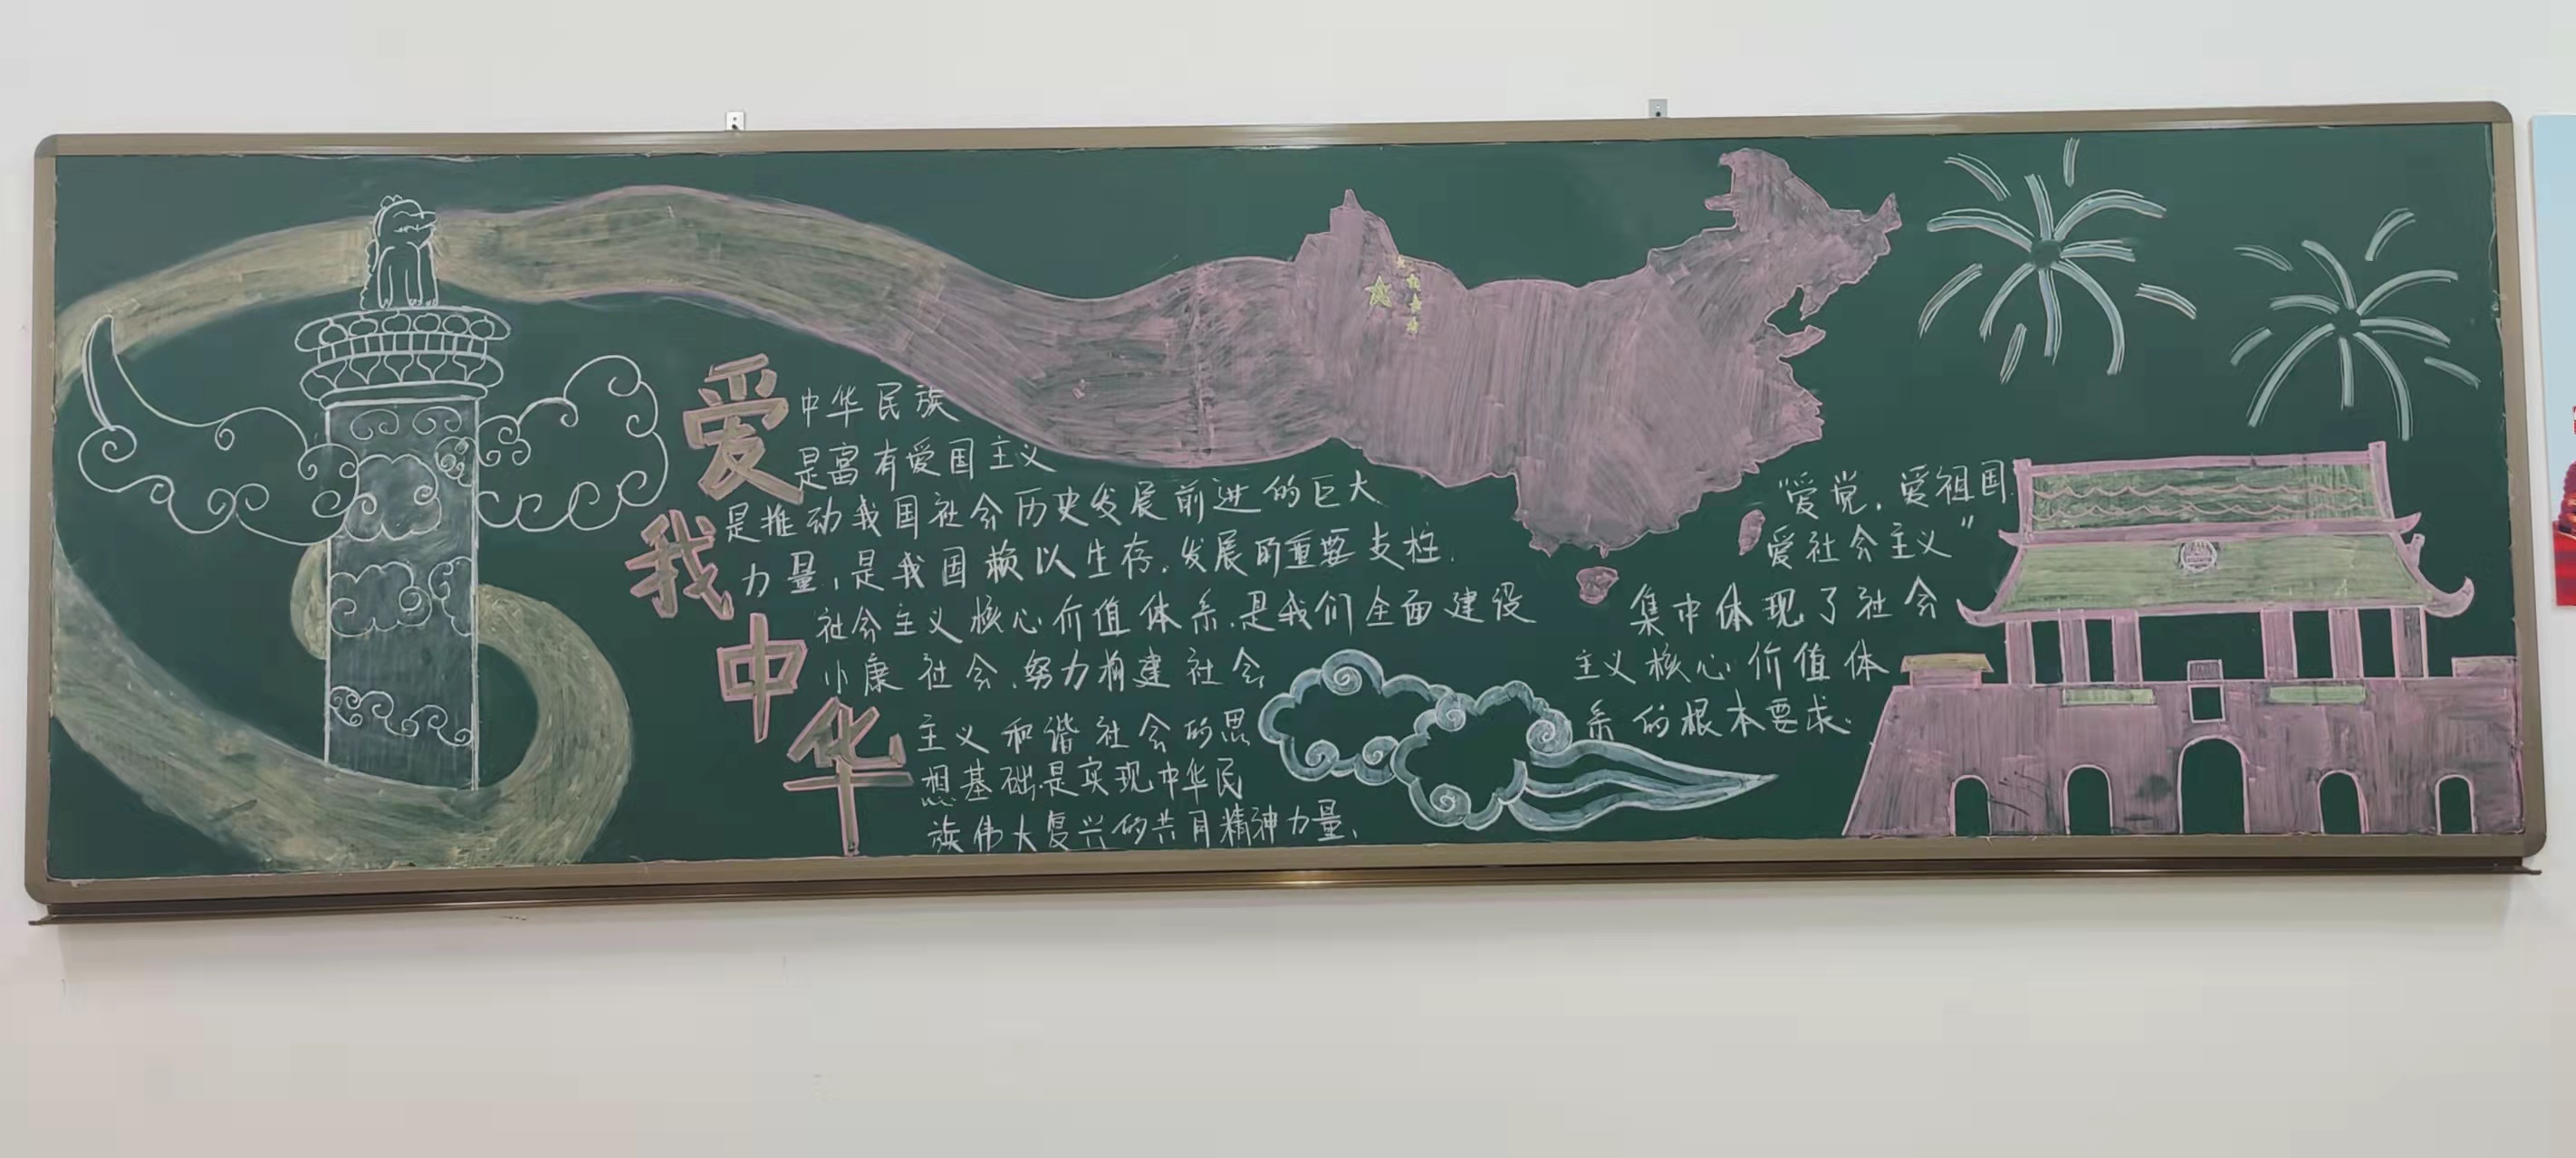 爱我中华
中华民族
是富有爱国主义
是推动我国社会历史发展前进的巨大
力量，是我国赖以生存，发展的重要支柱．
社会主义核心价值体系．是我们全面建设
小康社会，努力构建社会
主义和谐社会的思
想基础．是实现中华民
族伟大复兴的共同精神力量、
“爱党，爱祖国
爱社会主义”
集中体现了社会
主义核心价值体
系的根本要求．